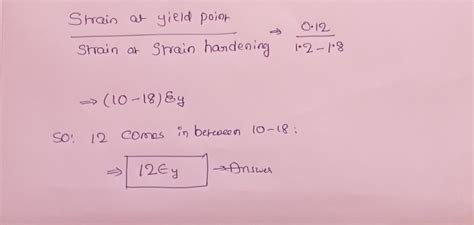 Strain at yield point
Strain at Strain handening ⇒ 0.12
1.2-1.8
⇒ (10-18) Ey
SO: 12 Comes in between 10-18:
⇒ 12Ey → Answer